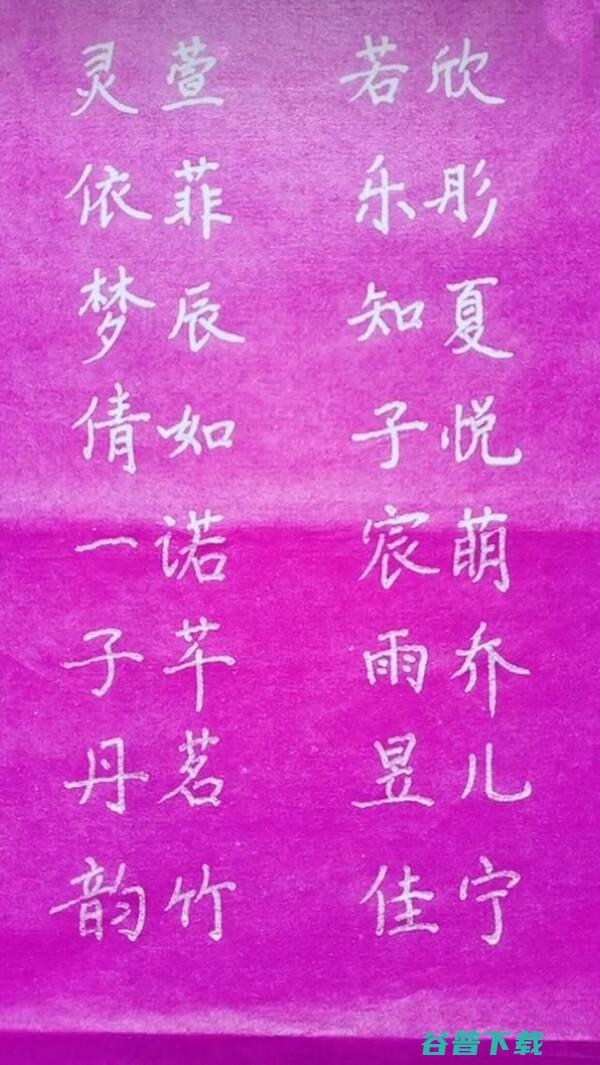 灵萱 若欣
依菲 乐彤
梦辰 知夏
倩如 子悦
一诺 宸萌
子芊 雨乔
丹茗 昱儿
韵竹 佳宁
谷普下载